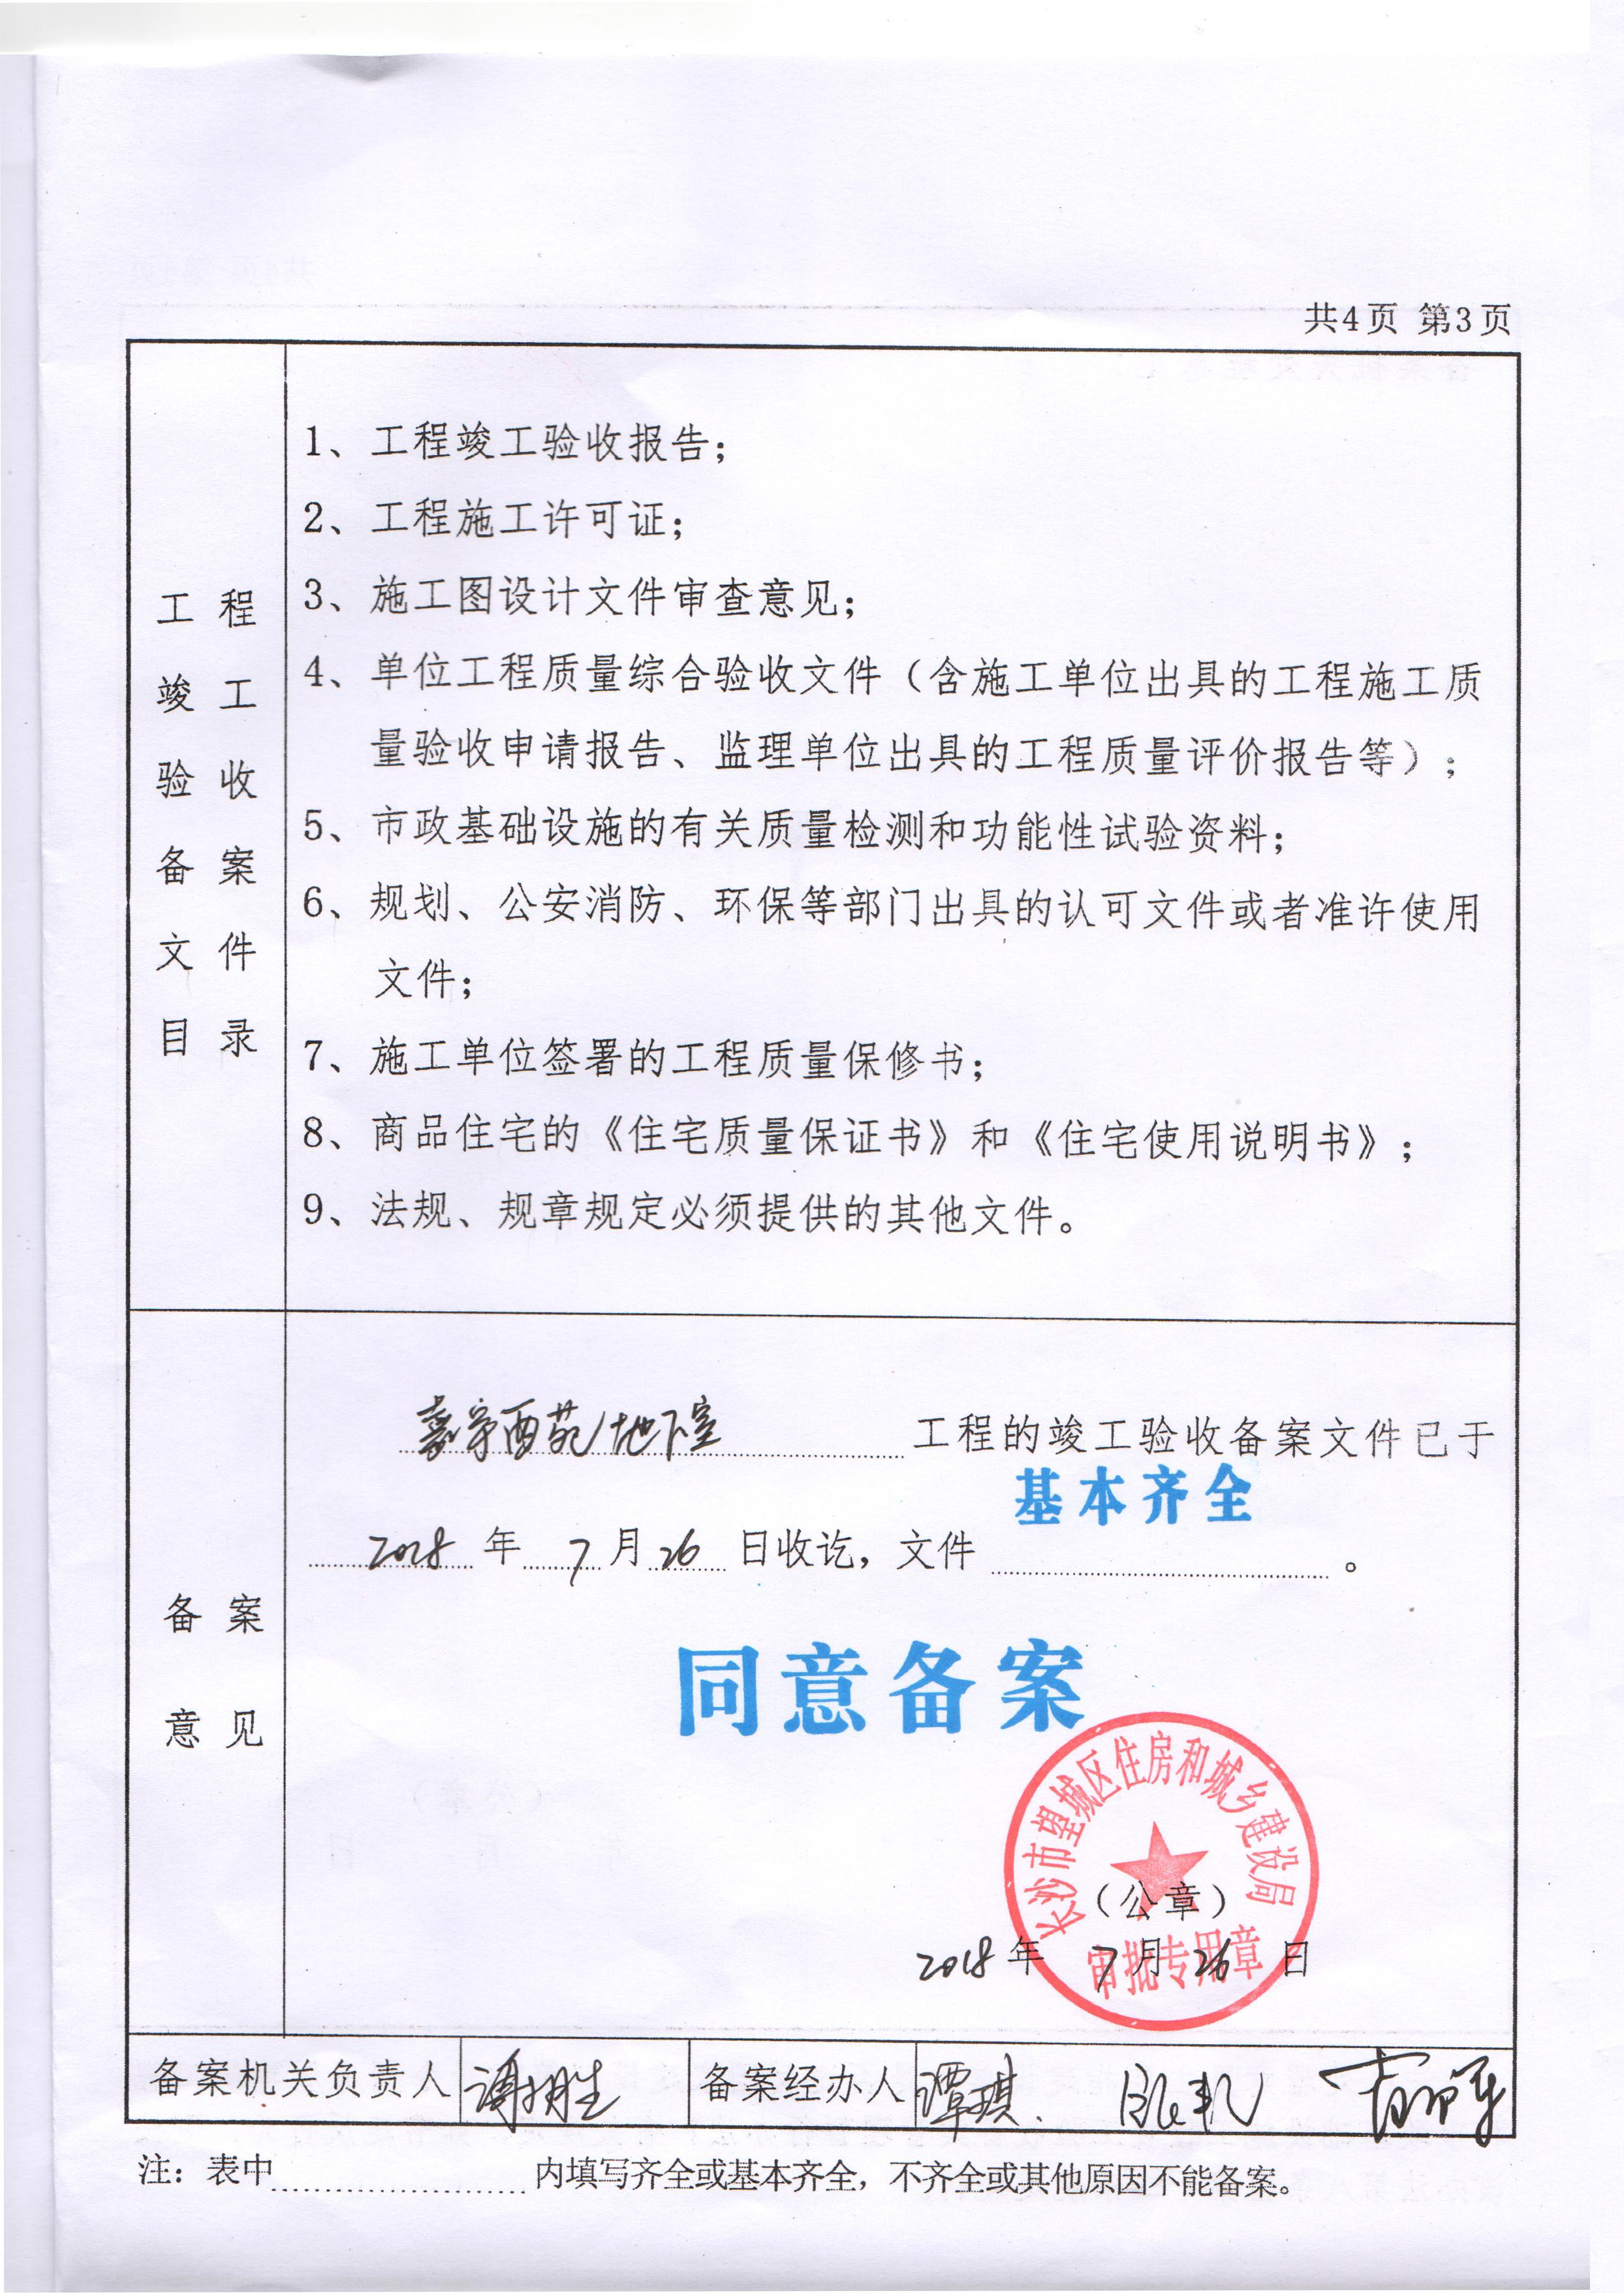 共4页 第3页
工程
竣工
验收
备案
文件
目录
1、工程竣工验收报告；
2、工程施工许可证；
3、施工图设计文件审查意见；
4、单位工程质量综合验收文件（含施工单位出具的工程施工质
量验收申请报告、监理单位出具的工程质量评价报告等）；
5、市政基础设施的有关质量检测和功能性试验资料；
6、规划、公安消防、环保等部门出具的认可文件或者准许使用
文件；
7、施工单位签署的工程质量保修书；
8、商品住宅的《住宅质量保证书》和《住宅使用说明书》；
9、法规、规章规定必须提供的其他文件。
备案
意见
西苑地下室 工程的竣工验收备案文件已于
2018 年 7 月 26 日收讫，文件 基本齐全 。
同意备案
长沙市望城区住房和城乡建设局
（公章）
2018 年 7 月 26 日
审批专用章
备案机关负责人
备案经办人 谭琪
注：表中 内填写齐全或基本齐全，不齐全或其他原因不能备案。